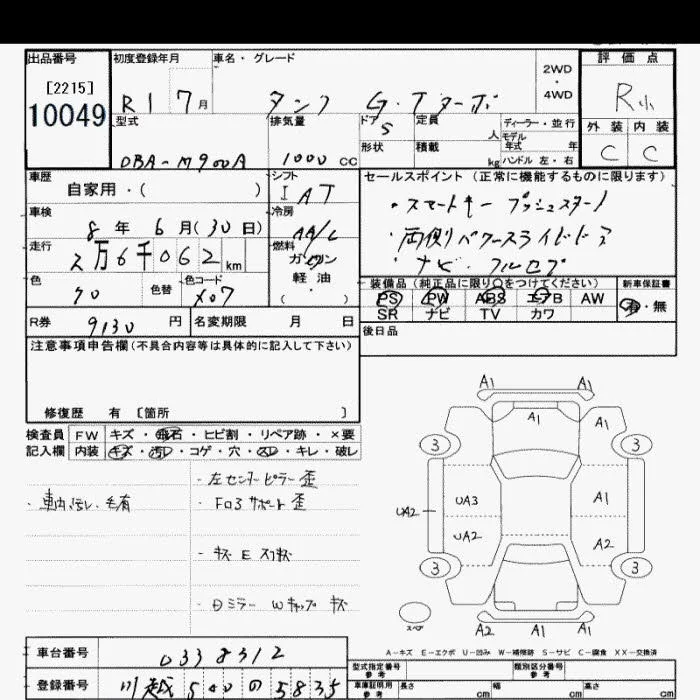 出品番号
[2215]
10049
初度登録年月
R1 7月
車名・グレード
タンク G・Tターボ
2WD
・
4WD
評価点
R小
外装 内装
C C
型式
DBA-M900A
排気量
1000 CC
ドア
5
形状
定員
人
積載
kg
ディーラー・並行
モデル
年式 年
ハンドル 左・右
車歴
自家用・( )
シフト
I AT
車検
8年 6月(30日)
冷房
AA/C
走行
2万6千062km
燃料
ガソリン
軽油
( ・ )
色
クロ
色替
色コード
X07
セールスポイント (正常に機能するものに限ります)
・スマートキー プッシュスタート
・両側パワースライドドア
・ナビ・フルセグ
装備品 (純正品に限り○をつけてください)
PS PW ABS エアB AW
SR ナビ TV カワ
新車保証書
有・無
R券 9130 円
名変期限 月 日
後日品
注意事項申告欄(不具合内容等は具体的に記入して下さい)
修復歴 有 [箇所 ]
検査員
記入欄
FW キズ・飛石・ヒビ割・リペア跡・×要
内装 キズ・汚レ・コゲ・穴・スレ・キレ・破レ
・車内汚レ・毛有
・左センターピラー歪
・FロアサポートE歪
・キズ E スリキズ
・Dミラー Wキャップ キズ
A1 A1
A1 A1
3 3
UA3 A1
UA2
UA2 A2
3 3
スペア
A2 A1 A1
A-キズ E-エクボ U-凹み W-補修跡 S-サビ C-腐食 XX-交換済
車台番号 0338312
登録番号 川越 540 の 5835
型式指定番号
参考
類別区分番号
参考
車庫証明用
参考
長さ cm 幅 cm 高さ cm